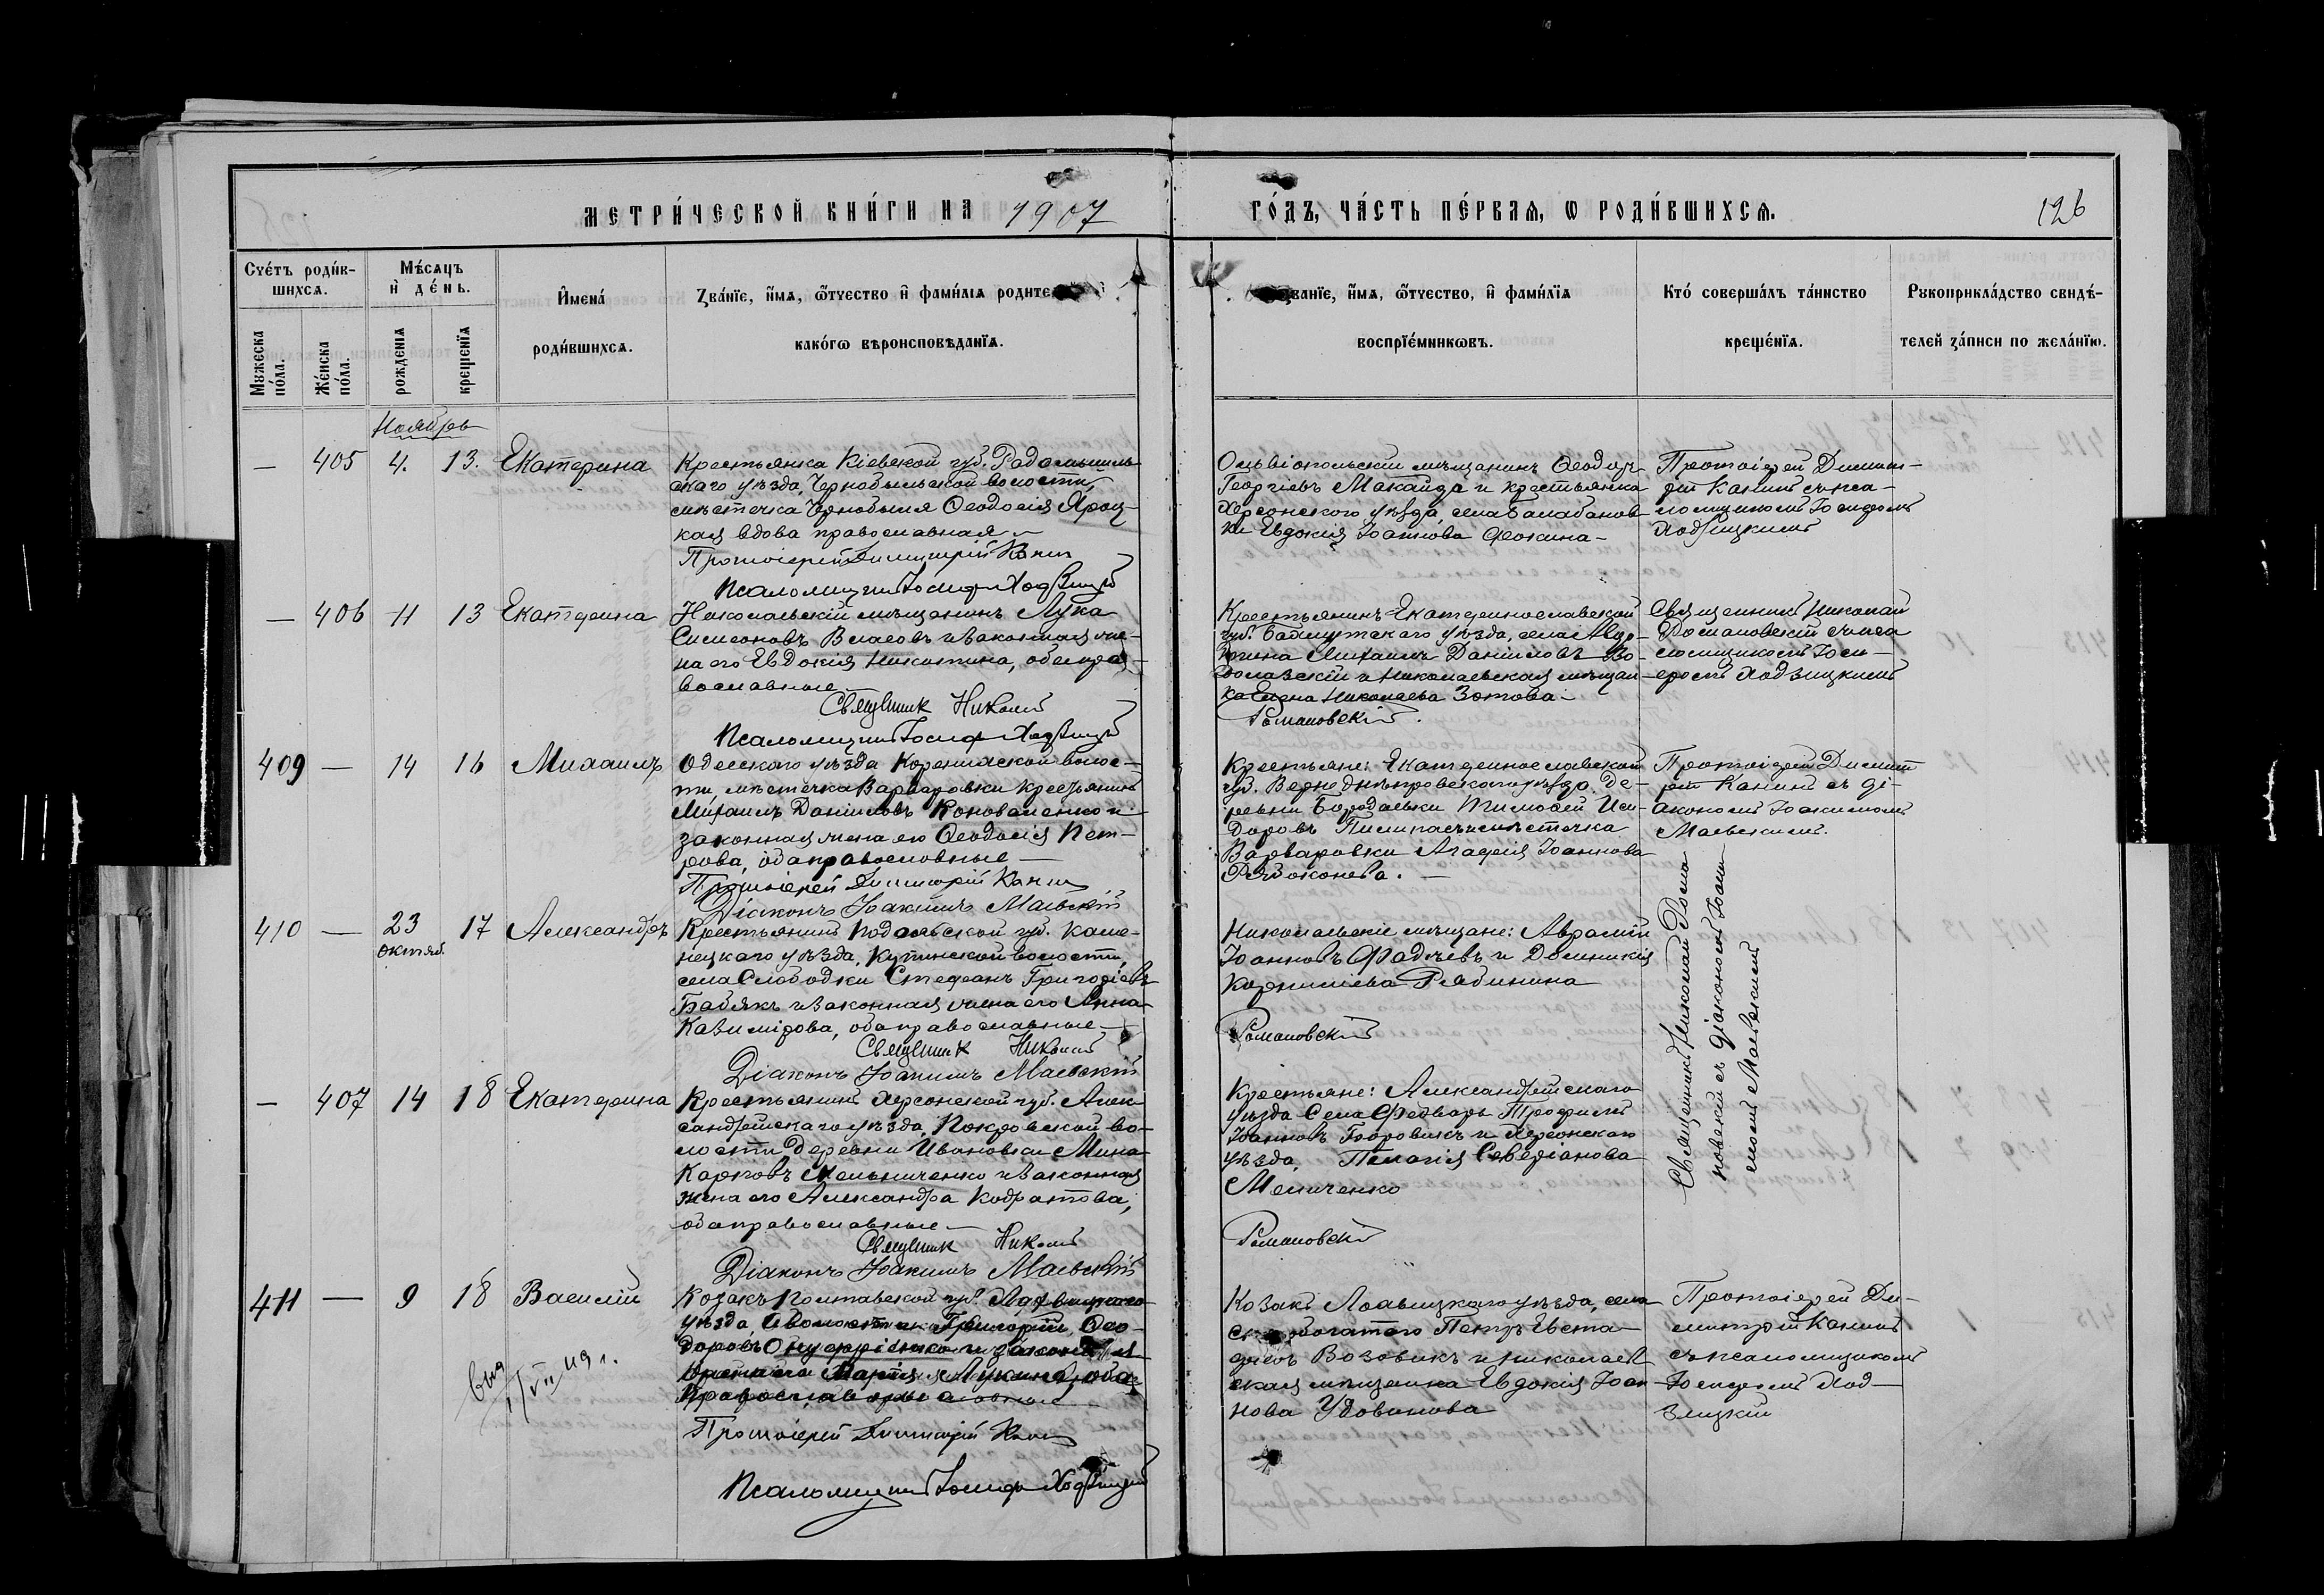 МЕТРИ́ЧЕСКОЙ КНИ́ГИ НА 1907
ГО́ДЪ, ЧА́СТЬ ПЕ́РВАѦ, Ѡ РОДИ́ВШИХСѦ.
126
Сче́тъ роди́в-
шихсѧ.
Мꙋжеска по́ла.
Же́нска по́ла.
Мѣ́сѧцъ
и҆ де́нь.
рожденїѧ
крещенїѧ
И҆мена́
роди́вшихсѧ.
Зва́нїе, и҆́мѧ, ѻ҆́тчество и҆ фами́лїѧ родите
како́гѡ вѣроисповѣданїѧ.
зва́нїе, и҆́мѧ, ѻ҆́тчество, и҆ фами́лїѧ
воспрїе́мникѡвъ.
Кто́ соверша́лъ та́инство
креще́нїѧ.
Рꙋкоприкла́дство свидѣ́-
телей за́писи по жела́нїю.
Ноябрь
— 405 4. 13. Екатерина
Крестьянка Кіевской губ. Радомысль-
скаго уѣзда, Чернобыльской волости,
мѣстечка Чернобыля Ѳеодосія Яроц-
кая вдова православная
Протоіерей Димитрій Канин
Псаломщикъ Іосифъ Ходзицкій
Ольвіопольскій мѣщанинъ Ѳеодоръ
Георгіевъ Макайда и крестьянка
Херсонского уѣзда, села Балабанов-
ки Евдокія Іоаннова Фокина
Протоіерей Димит-
рій Канинъ съ пса-
ломщикомъ Іосифомъ
Ходзицкимъ
— 406 11 13 Екатерина
Николаевскій мѣщанинъ Лука
Симеоновъ Власовъ и законная же-
на его Евдокія Никитина, оба пра-
вославные
Священник Николай
Псаломщикъ Іосифъ Ходзицкій
Крестьянинъ Екатеринославской
губ. Бахмутскаго уѣзда, села
Михаилъ Даніиловъ
и Николаевская мѣщан-
ка Елена Николаева Зотова
Романовскій.
Священникъ Николай
Романовскій съ пса-
ломщикомъ Іоси-
фомъ Ходзицкимъ
409 — 14 16 Михаилъ
Одесскаго уѣзда Коренихской волос-
ти, мѣстечка Варваровки крестьянинъ
Михаилъ Даніиловъ Коноваленко и
законная жена его Ѳеодосія Пет-
рова, оба православные
Протоіерей Димитрій Канин
Діаконъ Іоакимъ Маевскій
Крестьяне: Екатеринославской
губ. Верхнеднѣпровскаго уѣзда, де-
ревни Бородаевки Тимоѳей Иси-
доровъ мѣстечка
Варваровки Агафія Іоаннова
Рябоконева.
Протоіерей Димит-
рій Канинъ съ ді-
акономъ Іоакимомъ
Маевскимъ.
410 — 23 октяб. 17 Александръ
Крестьянинъ Подольской губ. Каме-
нецкаго уѣзда, Купинской волости,
села Слободки Стефанъ Григоріевъ
Бабякъ и законная жена его Анна
Казимірова, оба православные
Священник Николай
Діаконъ Іоакимъ Маевскій
Николаевскіе мѣщане: Аврамій
Іоанновъ Фадѣевъ и Домникія
Корниліева Рябинина
Романовскій
Священникъ Николай Рома-
новскій съ діакономъ Іоаки-
момъ Маевскимъ
— 407 14 18 Екатерина
Крестьянинъ Херсонской губ. Алек-
сандрійскаго уѣзда, Покровской во-
лости, деревни Ивановки Мина
Карповъ Мельниченко и законная
жена его Александра Кодратова,
оба православные
Священник Николай
Діаконъ Іоакимъ Маевскій
Крестьяне: Александрійскаго
уѣзда Села Федваръ Трофимъ
Іоанновъ Боровикъ и Херсонскаго
уѣзда, Пелагія Северіанова
Меличенко
Романовскій
411 — 9 18 Василій
Козакъ Полтавской губ. Лохвицкаго
уѣзда и волости Григорій Ѳео-
доровъ Онуфріенко и законная
жена его Марія Лукина, оба
православные
Протоіерей Димитрій Канин
Псаломщикъ Іосифъ Ходзицкій
Козакъ Лохвицкаго уѣзда, села
Петръ Евста-
фіевъ Возовикъ и николаев-
ская мѣщанка Евдокія Іоан-
нова Удовикова
Протоіерей Ди-
митрій Канинъ
съ псаломщикомъ
Іосифомъ Ход-
зицкій